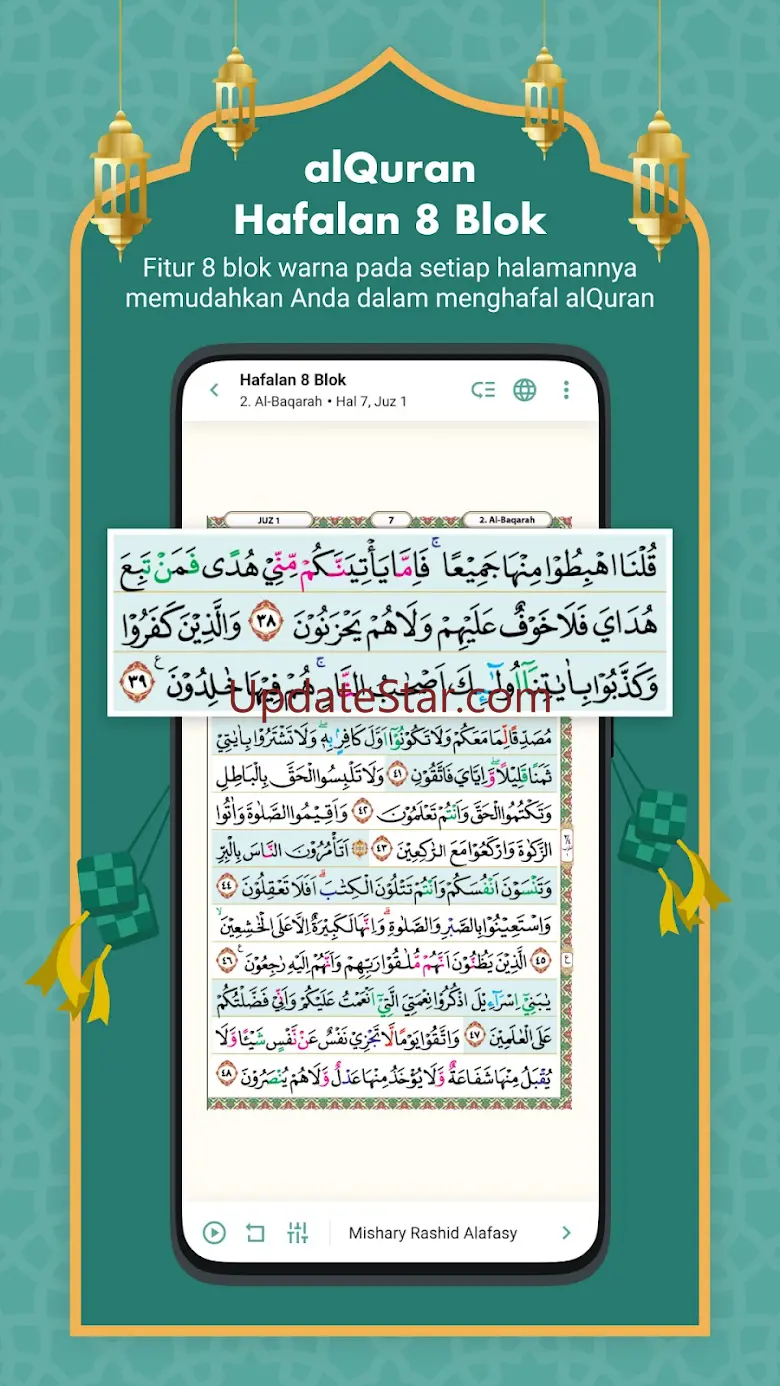 alQuran
Hafalan 8 Blok
Fitur 8 blok warna pada setiap halamannya
memudahkan Anda dalam menghafal alQuran
Hafalan 8 Blok
2. Al-Baqarah • Hal 7, Juz 1
JUZ 1 7 2. Al-Baqarah
قُلْنَا اهْبِطُوْا مِنْهَا جَمِيْعًا ۚ فَاِمَّا يَأْتِيَنَّكُمْ مِّنِّيْ هُدًى فَمَنْ تَبِعَ
هُدَايَ فَلَا خَوْفٌ عَلَيْهِمْ وَلَا هُمْ يَحْزَنُوْنَ ٣٨ وَالَّذِيْنَ كَفَرُوْا
وَكَذَّبُوْا بِاٰيٰتِنَآ اُولٰۤىِٕكَ اَصْحٰبُ النَّارِ ۚ هُمْ فِيْهَا خٰلِدُوْنَ ٣٩
UpdateStar.com
مُصَدِّقًا لِّمَا مَعَكُمْ وَلَا تَكُوْنُوْٓا اَوَّلَ كَافِرٍۢ بِهٖ ۖ وَلَا تَشْتَرُوْا بِاٰيٰتِيْ
ثَمَنًا قَلِيْلًا ۖ وَّاِيَّايَ فَاتَّقُوْنِ ٤١ وَلَا تَلْبِسُوا الْحَقَّ بِالْبَاطِلِ
وَتَكْتُمُوا الْحَقَّ وَاَنْتُمْ تَعْلَمُوْنَ ٤٢ وَاَقِيْمُوا الصَّلٰوةَ وَاٰتُوا
الزَّكٰوةَ وَارْكَعُوْا مَعَ الرّٰكِعِيْنَ ٤٣ اَتَأْمُرُوْنَ النَّاسَ بِالْبِرِّ
وَتَنْسَوْنَ اَنْفُسَكُمْ وَاَنْتُمْ تَتْلُوْنَ الْكِتٰبَ ۗ اَفَلَا تَعْقِلُوْنَ ٤٤
وَاسْتَعِيْنُوْا بِالصَّبْرِ وَالصَّلٰوةِ ۗ وَاِنَّهَا لَكَبِيْرَةٌ اِلَّا عَلَى الْخٰشِعِيْنَ ۙ
٤٥ الَّذِيْنَ يَظُنُّوْنَ اَنَّهُمْ مُّلٰقُوْا رَبِّهِمْ وَاَنَّهُمْ اِلَيْهِ رٰجِعُوْنَ ٤٦
يٰبَنِيْٓ اِسْرَاۤءِيْلَ اذْكُرُوْا نِعْمَتِيَ الَّتِيْٓ اَنْعَمْتُ عَلَيْكُمْ وَاَنِّيْ فَضَّلْتُكُمْ
عَلَى الْعٰلَمِيْنَ ٤٧ وَاتَّقُوْا يَوْمًا لَّا تَجْزِيْ نَفْسٌ عَنْ نَّفْسٍ شَيْـًٔا وَّلَا
يُقْبَلُ مِنْهَا شَفَاعَةٌ وَّلَا يُؤْخَذُ مِنْهَا عَدْلٌ وَّلَا هُمْ يُنْصَرُوْنَ ٤٨
Mishary Rashid Alafasy